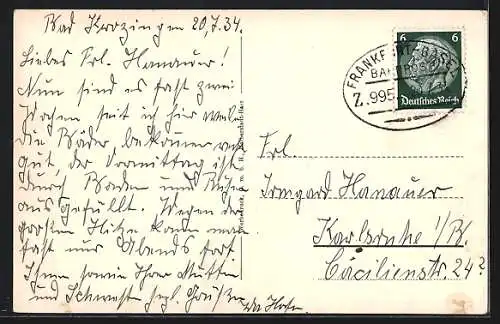 Bad Krozingen 20.7.34.
Liebes Frl. Hanauer!
Nun sind es fast zwei
Wochen seit ich hier weile
die Bäder bekommen mir
gut, der Vormittag ist
durch Baden und Ruhen
ausgefüllt. Wegen der
großen Hitze kann man
fast nur Abends fort
Ihnen sowie Ihrer Mutter
und Schwester herzl. Grüße
6 6
Deutsches Reich
FRANKFURT-BASEL
BAHNPOST
Z.995
Frl.
Irmgard Hanauer
Karlsruhe i/B.
Cäcilienstr. 24